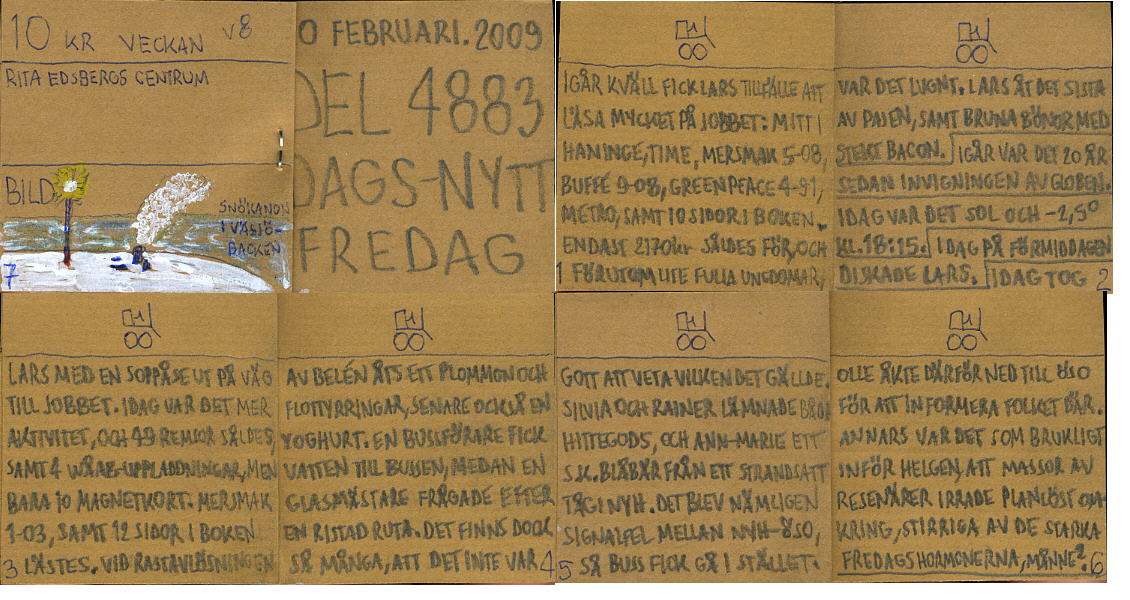 10 KR VECKAN V8
RITA EDSBERGS CENTRUM
BILD
SNÖKANON
I VÄSJÖ-
BACKEN
7
0 FEBRUARI. 2009
DEL 4883
DAGS-NYTT
FREDAG
IGÅR KVÄLL FICK LARS TILLFÄLLE ATT
LÄSA MYCKET PÅ JOBBET: MITT I
HANINGE, TIME, MERSMAK 5-08,
BUFFÉ 9-08, GREENPEACE 4-91,
METRO, SAMT 10 SIDOR I BOKEN.
ENDAST 2170kr SÅLDES FÖR, OCH
1 FÖRUTOM LITE FULLA UNGDOMAR,
VAR DET LUGNT. LARS ÅT DET SISTA
AV PAJEN, SAMT BRUNA BÖNOR MED
STEKT BACON. IGÅR VAR DET 20 ÅR
SEDAN INVIGNINGEN AV GLOBEN.
IDAG VAR DET SOL OCH -2,5°
KL. 18:15. IDAG PÅ FÖRMIDDAGEN
DISKADE LARS. IDAG TOG 2
LARS MED EN SOPPÅSE UT PÅ VÄG
TILL JOBBET. IDAG VAR DET MER
AKTIVITET, OCH 49 REMSOR SÅLDES,
SAMT 4 WÅAB-UPPLADDNINGAR, MEN
BARA 10 MAGNETKORT. MERSMAK
1-03, SAMT 12 SIDOR I BOKEN
3 LÄSTES. VID RASTAVLÖSNINGEN
AV BELÉN ÅTS ETT PLOMMON OCH
FLOTTYRRINGAR, SENARE OCKSÅ EN
YOGHURT. EN BUSSFÖRARE FICK
VATTEN TILL BUSSEN, MEDAN EN
GLASMÄSTARE FRÅGADE EFTER
EN RISTAD RUTA. DET FINNS DOCK
SÅ MÅNGA, ATT DET INTE VAR 4
GOTT ATT VETA VILKEN DET GÄLLDE.
SILVIA OCH RAINER LÄMNADE
HITTEGODS, OCH ANN-MARIE ETT
S.K. BLÅBÄR FRÅN ETT STRANDSATT
TÅG I NYH. DET BLEV NÄMLIGEN
SIGNALFEL MELLAN NYH-ÖSO,
5 SÅ BUSS FICK GÅ I STÄLLET.
OLLE ÅKTE DÄRFÖR NED TILL ÖSO
FÖR ATT INFORMERA FOLKET DÄR.
ANNARS VAR DET SOM BRUKLIGT
INFÖR HELGEN, ATT MASSOR AV
RESENÄRER IRRADE PLANLÖST OM-
KRING, STIRRIGA AV DE STARKA
FREDAGSHORMONERNA, MÅNNE? 6